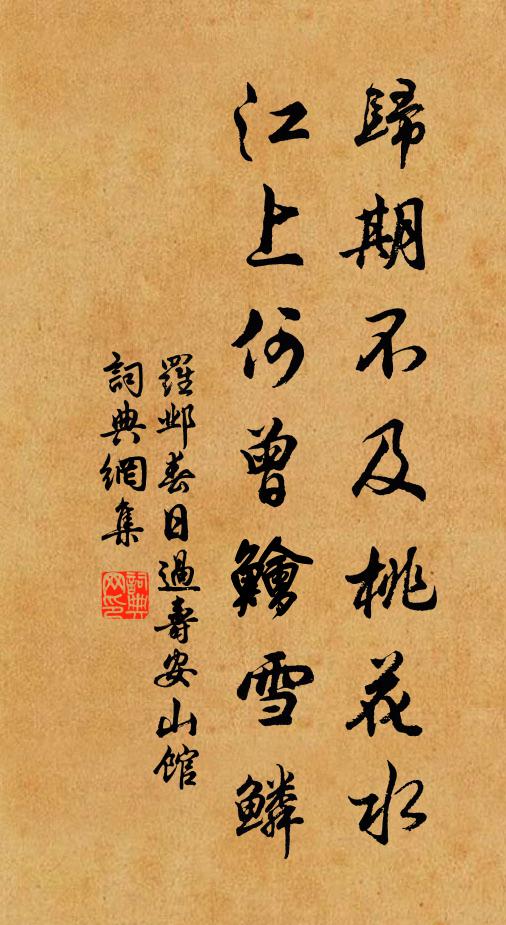 歸期不及桃花水
江上何曾鱠雪鱗
羅鄴春日過壽安山館
詞典網集
詞典
网印